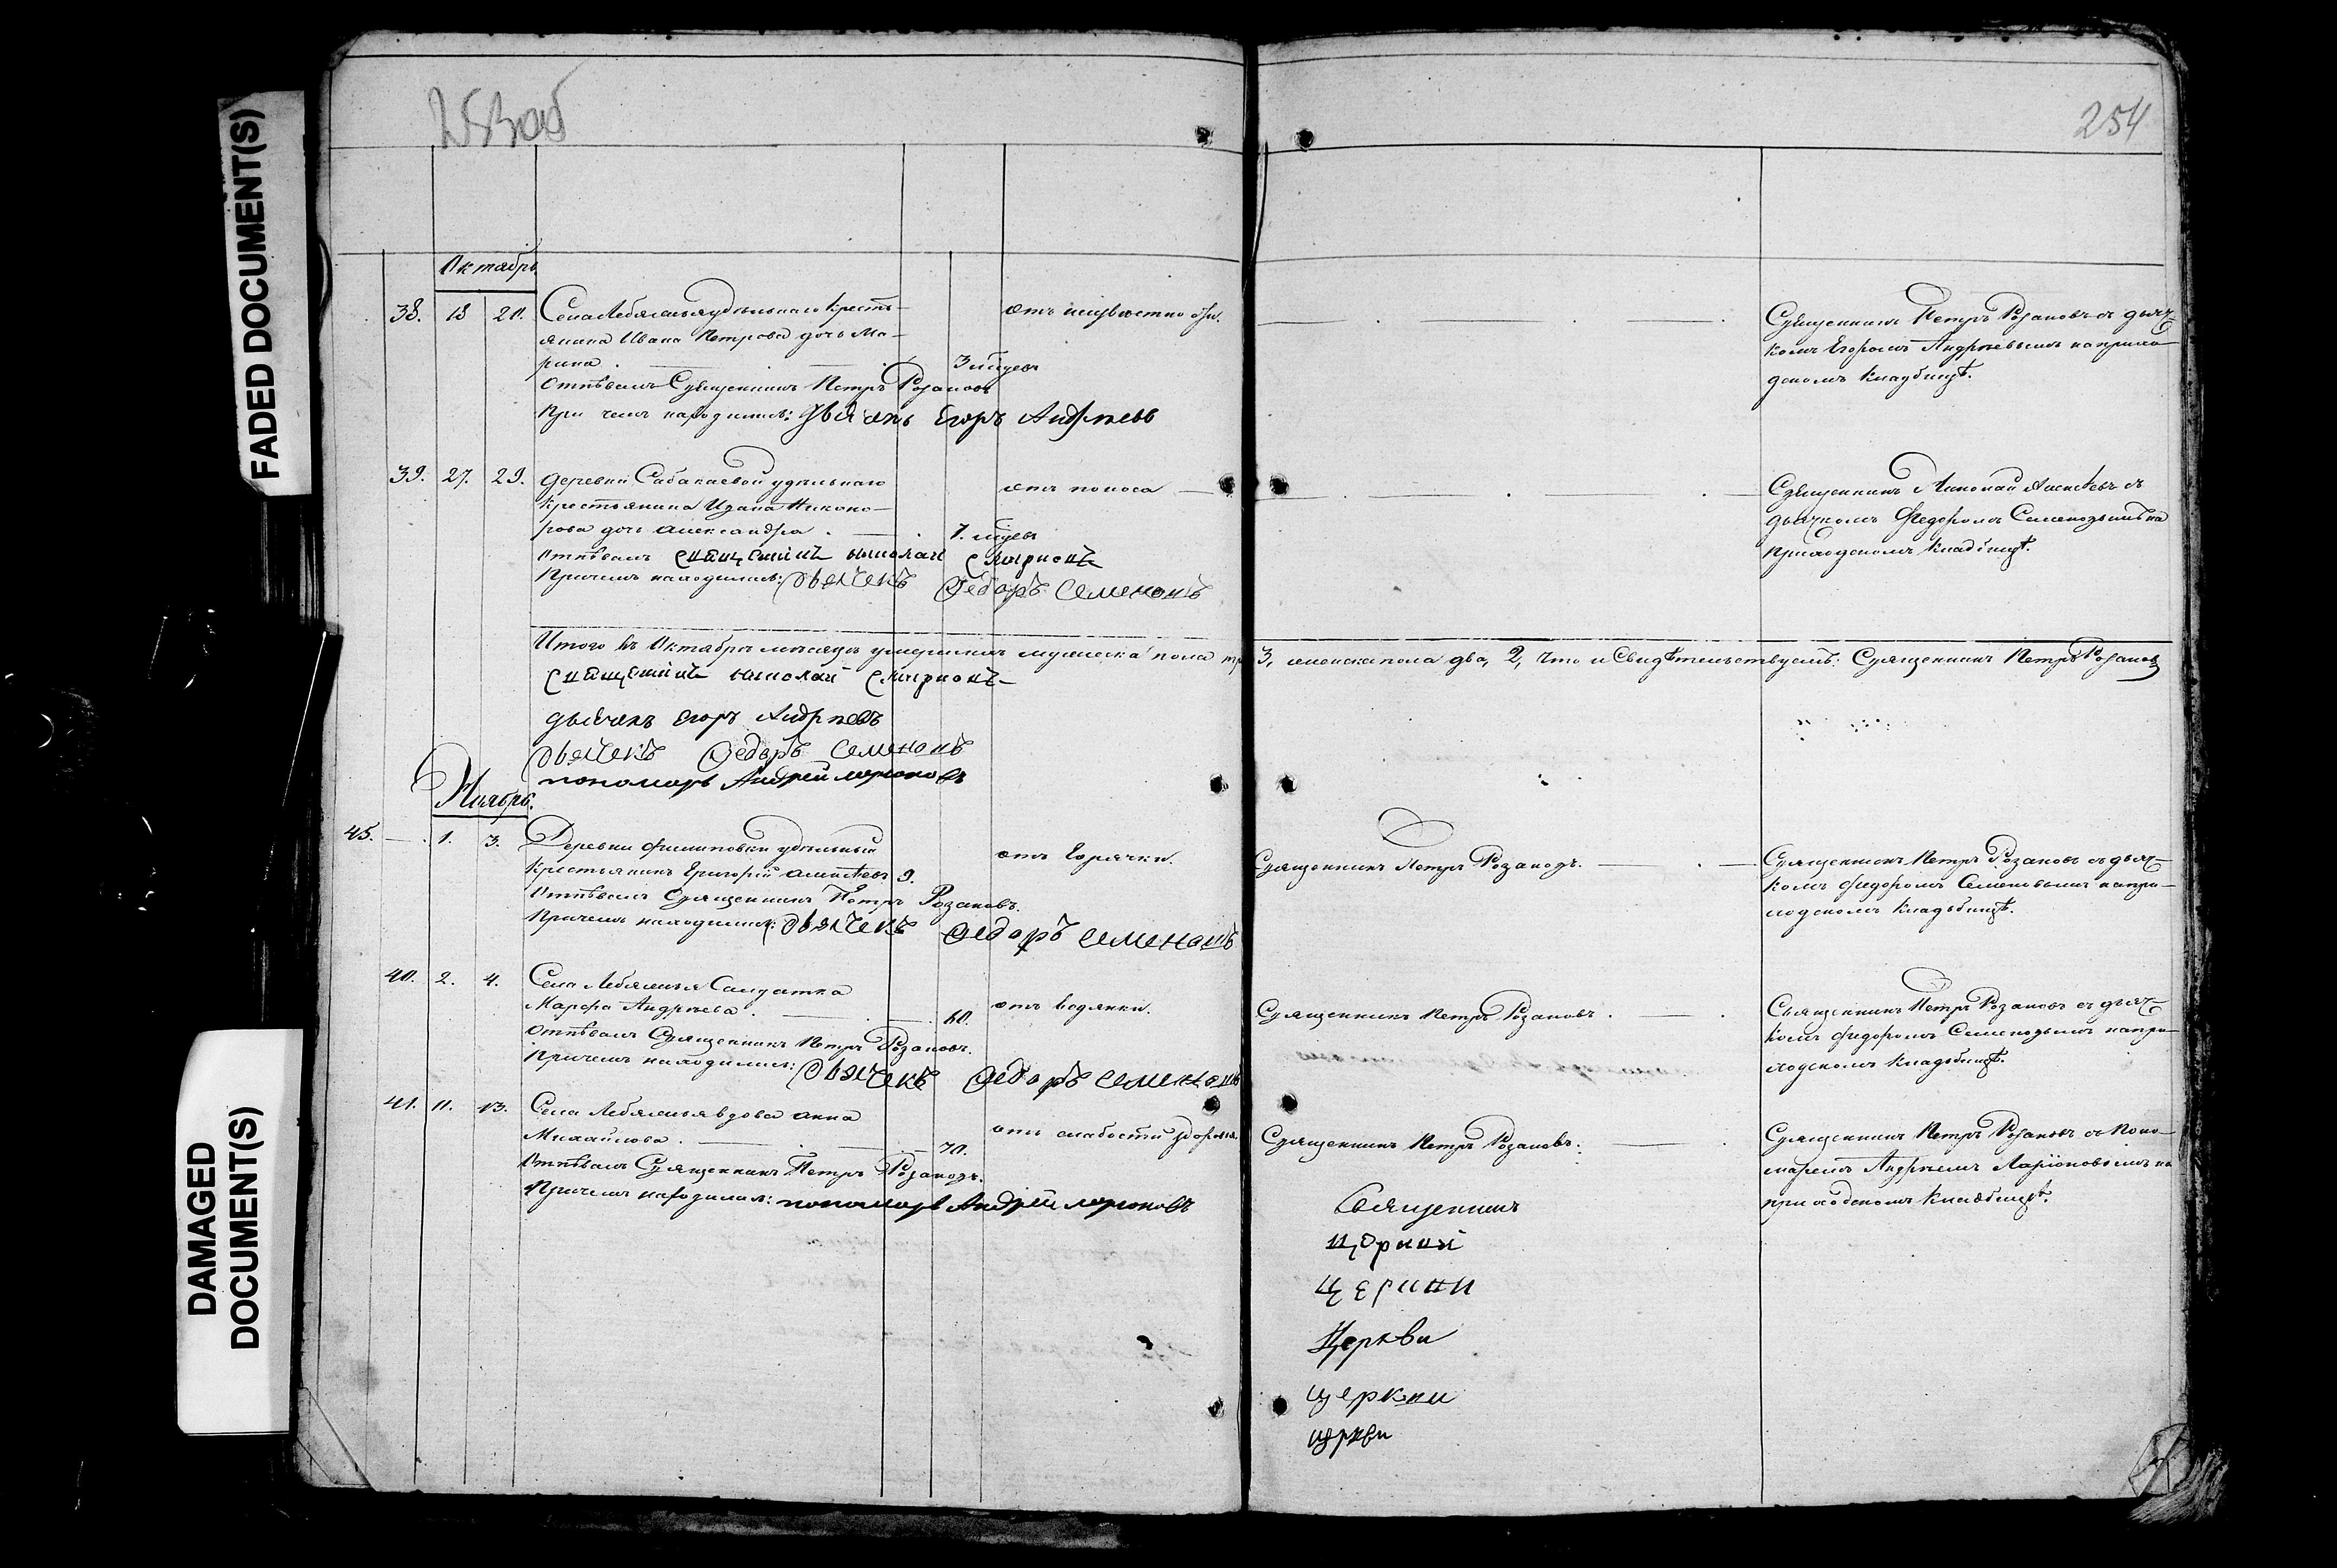 253об
254
FADED DOCUMENT(S)
DAMAGED
DOCUMENT(S)
Октябрь
38. 18 20. Села Лебяжья удѣльнаго кресть-
янина Ивана Петрова дочь Ма-
рина . 3 нѣдѣ от неизвѣстно
Отпѣвалъ Священникъ Петръ Розановъ
При чемъ находился: дьячекъ Егоръ Андреевъ
Священникъ Петръ Розановъ съ дьяч-
комъ Егоромъ Андреевымъ на прихо-
дскомъ кладбищѣ.
39. 27. 29. Деревни Сабакаевой удѣльнаго
Крестьянина Ивана Никоно-
рова дочь Александра . 7. нѣдѣ отъ поноса
Отпѣвалъ священникъ николай смирновъ
Причемъ находился: дьячекъ Федоръ Семеновъ
Священникъ Николай Алексѣевъ съ
дьячкомъ Федоромъ Семеновымъ на
приходскомъ кладбищѣ.
Итого въ Октябрѣ месяцѣ умершихъ мужеска пола 3, женска пола два, 2, что и Свидѣтельствуемъ: Священникъ Петръ Розановъ
священникъ николай смирновъ
дьячекъ Егоръ Андреевъ
дьячекъ Федоръ Семеновъ
пономарь Андрей ларионовъ
Ноябрь.
45. — . 1. 3. Деревни Филиповки удѣльный
Крестьянинъ Григорій Алексѣевъ 9. отъ Горячки.
Отпѣвалъ Священникъ Петръ Розановъ.
Причемъ находился: дьячекъ Федоръ Семеновъ
Священникъ Петръ Розановъ.
Священникъ Петръ Розановъ съ дьяч-
комъ Федоромъ Семеновымъ на при-
ходскомъ кладбищѣ.
40. 2. 4. Села Лебяжья Салдатка
Марфа Андреева . 60. отъ водянки.
Отпѣвалъ Священникъ Петръ Розановъ.
Причемъ находился: дьячекъ Федоръ Семеновъ
Священникъ Петръ Розановъ .
Священникъ Петръ Розановъ съ дьяч-
комъ Федоромъ Семеновымъ на при-
ходскомъ кладбищѣ.
41. 11. 13. Села Лебяжья вдова Анна
Михайлова . 70. отъ слабости
Отпѣвалъ Священникъ Петръ Розановъ.
Причемъ находился: пономарь Андрей ларионовъ
Священникъ Петръ Розановъ.
Священникъ Петръ Розановъ съ Поно-
маремъ Андреемъ Ларіоновымъ на
приходскомъ кладбищѣ.
Священникъ
Церкви
Церкви
церкви